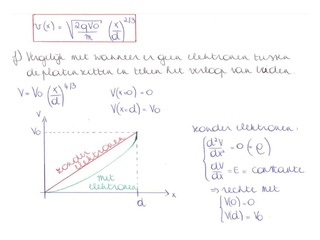 v(x) = √(2qV0/m) (x/d)^2/3
f) Vergelijk met wanneer er geen elektronen tussen
de platen zitten en teken het verloop van beiden
V = V0 (x/d)^4/3
V(x=0) = 0
V(x=d) = V0
V
V0
zonder elektronen
met elektronen
d
x
zonder elektronen:
d²V/dx² = 0 (-ρ)
dV/dx = E = constante
⇒ rechte met
V(0) = 0
V(d) = V0